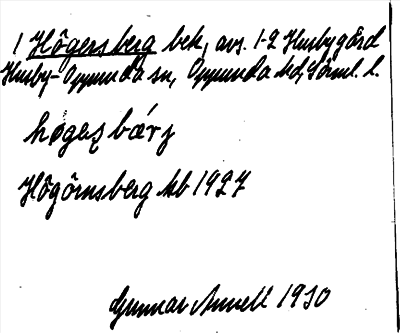 1 Högersberg bek, avs. 1-2 Husbygård
Husby-Oppunda sn, Oppunda hd, Söml. l.
høgeʂbærj
Högörnsberg kb 1927
Gunnar Anvell 1930